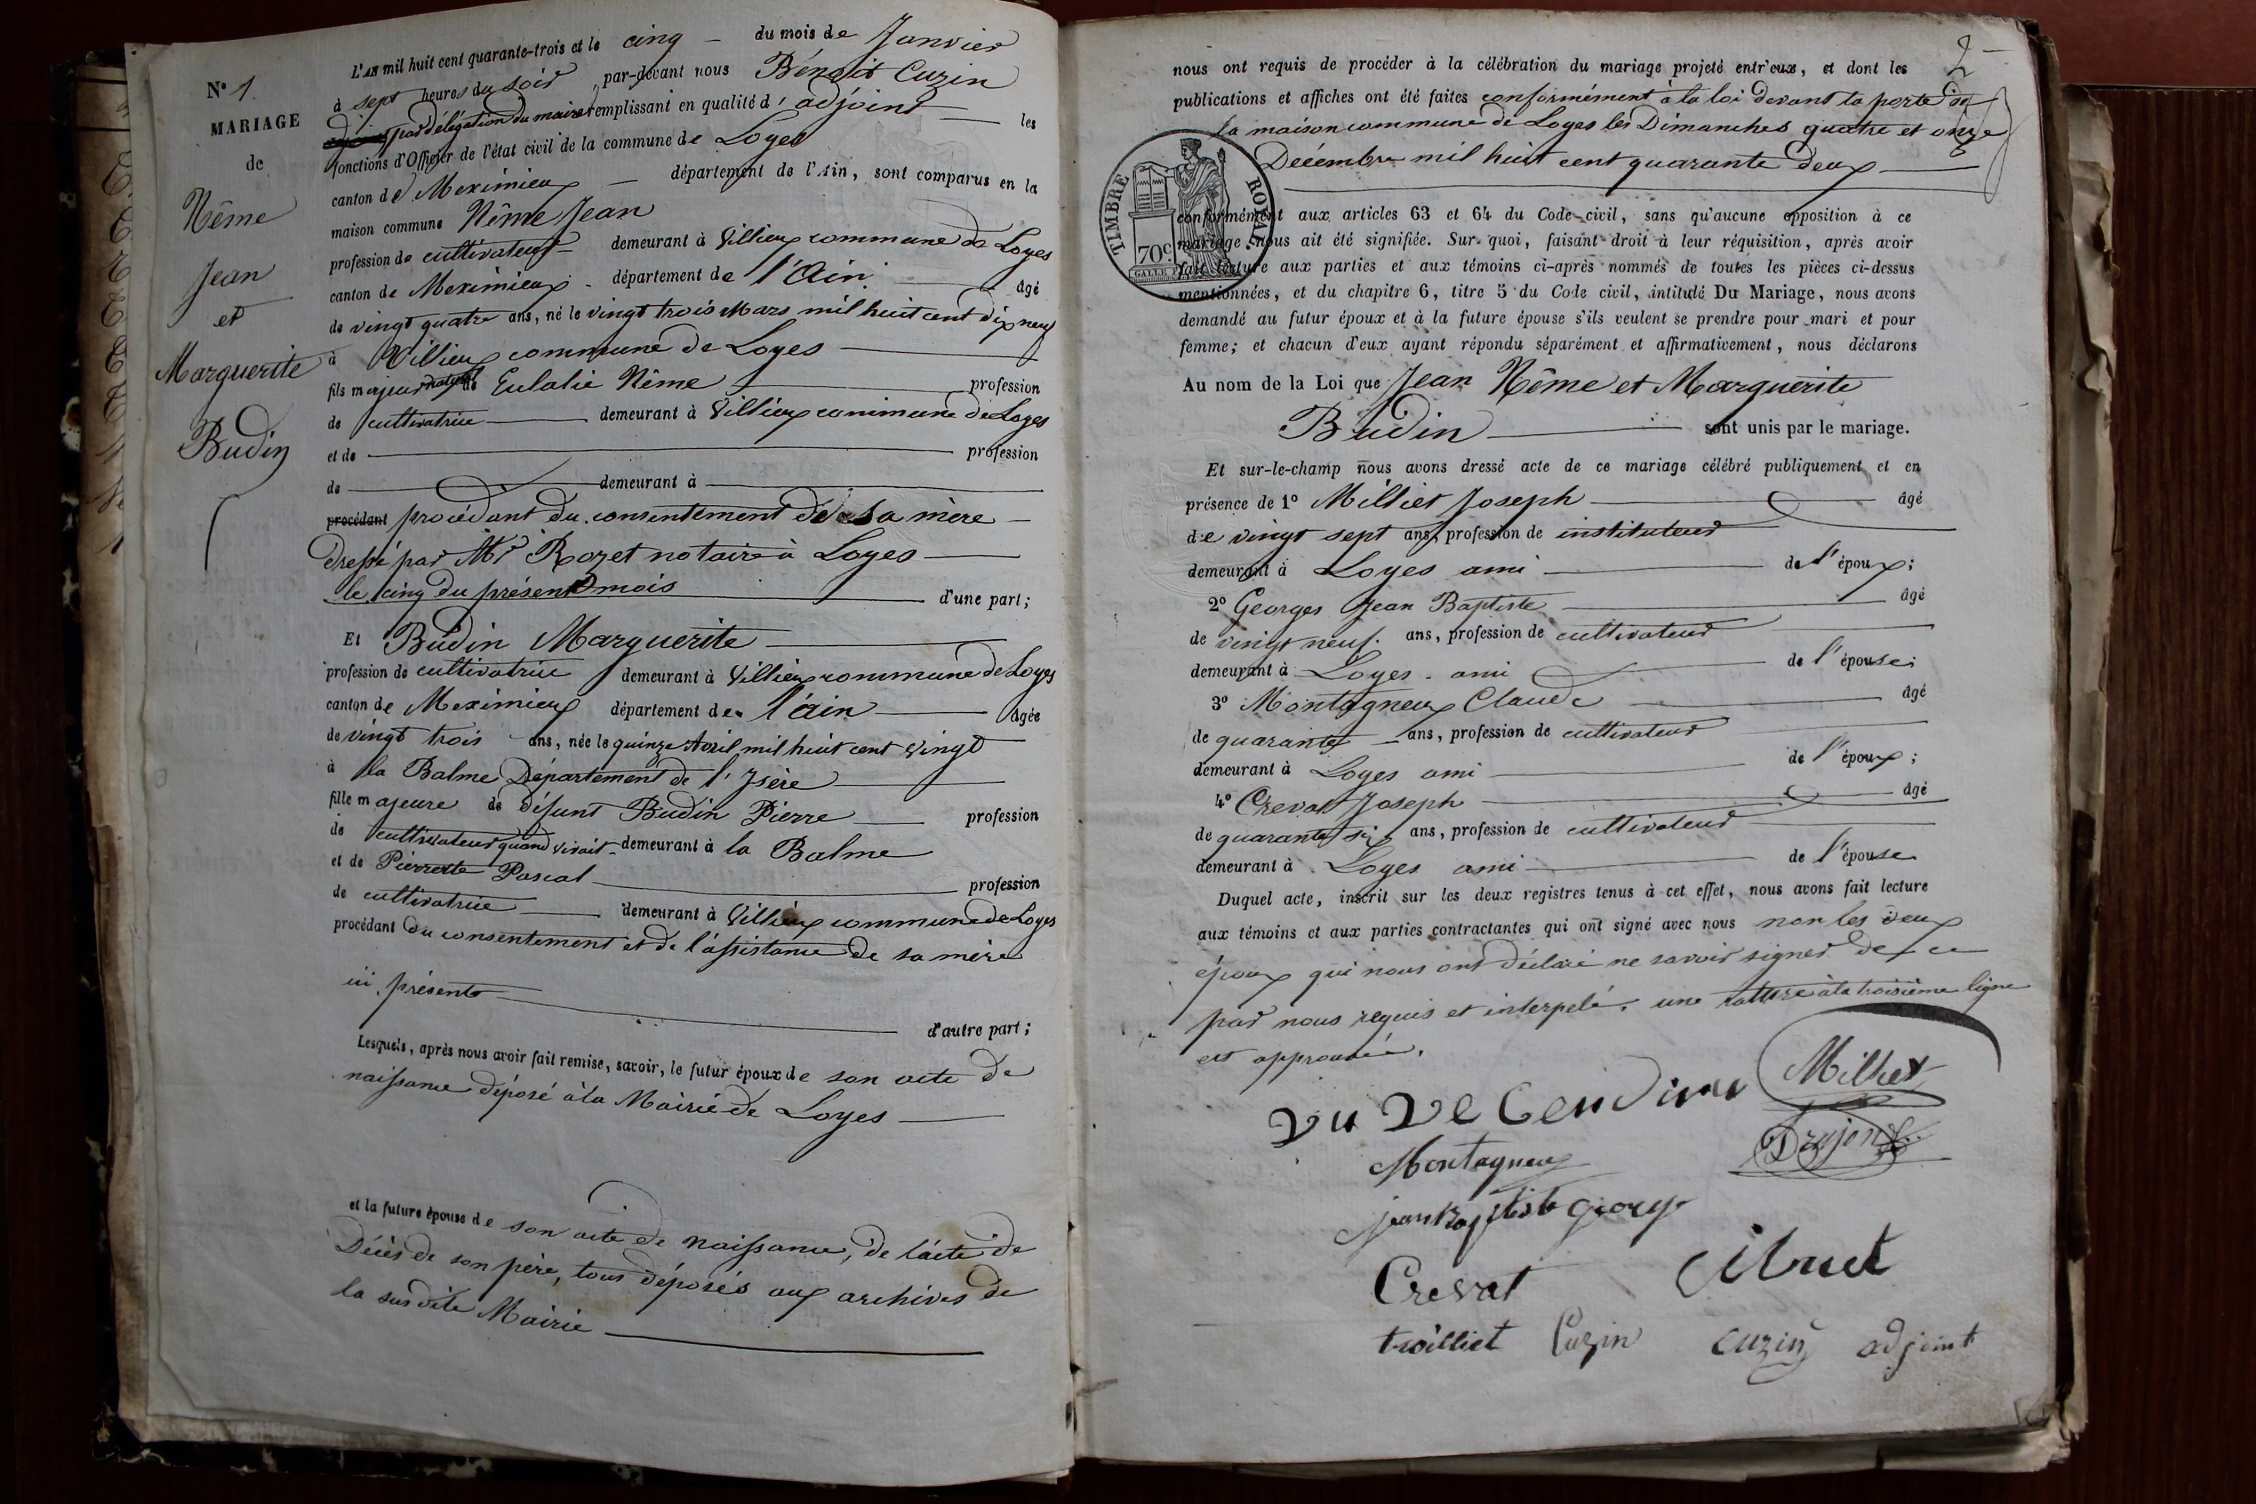 N° 1
MARIAGE
de
Nême
Jean
et
Marguerite
Budin
L'AN mil huit cent quarante-trois et le cinq du mois de Janvier
à sept heures du soir par-devant nous Bénoit Cuzin
par délégation du maire remplissant en qualité d'adjoint les
fonctions d'Officier de l'état civil de la commune de Loyes
canton de Meximieux département de l'Ain, sont comparus en la
maison commune Nême Jean
profession de cultivateur demeurant à Villieux commune de Loyes
canton de Meximieux département de l'Ain âgé
de vingt quatre ans, né le vingt trois Mars mil huit cent dix neuf
à Villieux commune de Loyes
fils majeur naturel de Eulalie Nême profession
de cultivatrice demeurant à Villieux commune de Loyes
et de profession
de demeurant à
procédant procédant du consentement de sa mère
dressé par Mr Rozet notaire à Loyes
le cinq du présent mois d'une part;
Et Budin Marguerite
profession de cultivatrice demeurant à Villieux commune de Loyes
canton de Meximieux département de l'Ain âgée
de vingt trois ans, née le quinze Avril mil huit cent vingt
à la Balme Département de l'Isère
fille majeure de défunt Budin Pierre profession
de cultivateur quand vivait demeurant à la Balme
et de Pierrette Pascal profession
de cultivatrice demeurant à Villieux commune de Loyes
procédant du consentement et de l'assistance de sa mère
ici présente
d'autre part;
Lesquels, après nous avoir fait remise, savoir, le futur époux de son acte de
naissance déposé à la Mairie de Loyes
et la future épouse de son acte de naissance, de l'acte de
Décès de son père, tous déposés aux archives de
la susdite Mairie
2
nous ont requis de procéder à la célébration du mariage projeté entr'eux, et dont les
publications et affiches ont été faites conformément à la loi devant la porte de
la maison commune de Loyes les Dimanches quatre et onze
Décembre mil huit cent quarante deux
TIMBRE ROYAL
70c
conformément aux articles 63 et 64 du Code civil, sans qu'aucune opposition à ce
mariage nous ait été signifiée. Sur quoi, faisant droit à leur réquisition, après avoir
fait lecture aux parties et aux témoins ci-après nommés de toutes les pièces ci-dessus
mentionnées, et du chapitre 6, titre 5 du Code civil, intitulé Du Mariage, nous avons
demandé au futur époux et à la future épouse s'ils veulent se prendre pour mari et pour
femme; et chacun d'eux ayant répondu séparément et affirmativement, nous déclarons
Au nom de la Loi que Jean Nême et Marguerite
Budin sont unis par le mariage.
Et sur-le-champ nous avons dressé acte de ce mariage célébré publiquement et en
présence de 1° Milliet Joseph âgé
de vingt sept ans, profession de instituteur
demeurant à Loyes ami de l'époux;
2° Georges Jean Baptiste âgé
de vingt neuf ans, profession de cultivateur
demeurant à Loyes ami de l'épouse;
3° Montagneux Claude âgé
de quarante ans, profession de cultivateur
demeurant à Loyes ami de l'époux;
4° Crevat Joseph âgé
de quarante six ans, profession de cultivateur
demeurant à Loyes ami de l'épouse
Duquel acte, inscrit sur les deux registres tenus à cet effet, nous avons fait lecture
aux témoins et aux parties contractantes qui ont signé avec nous non les deux
époux qui nous ont déclaré ne savoir signer de ce
par nous requis et interpelé. une rature à la troisième ligne
est approuvée.
Milliet
Montagneux
jean Baptiste George
Crevat
troilliet Cuzin cuzin adjoint